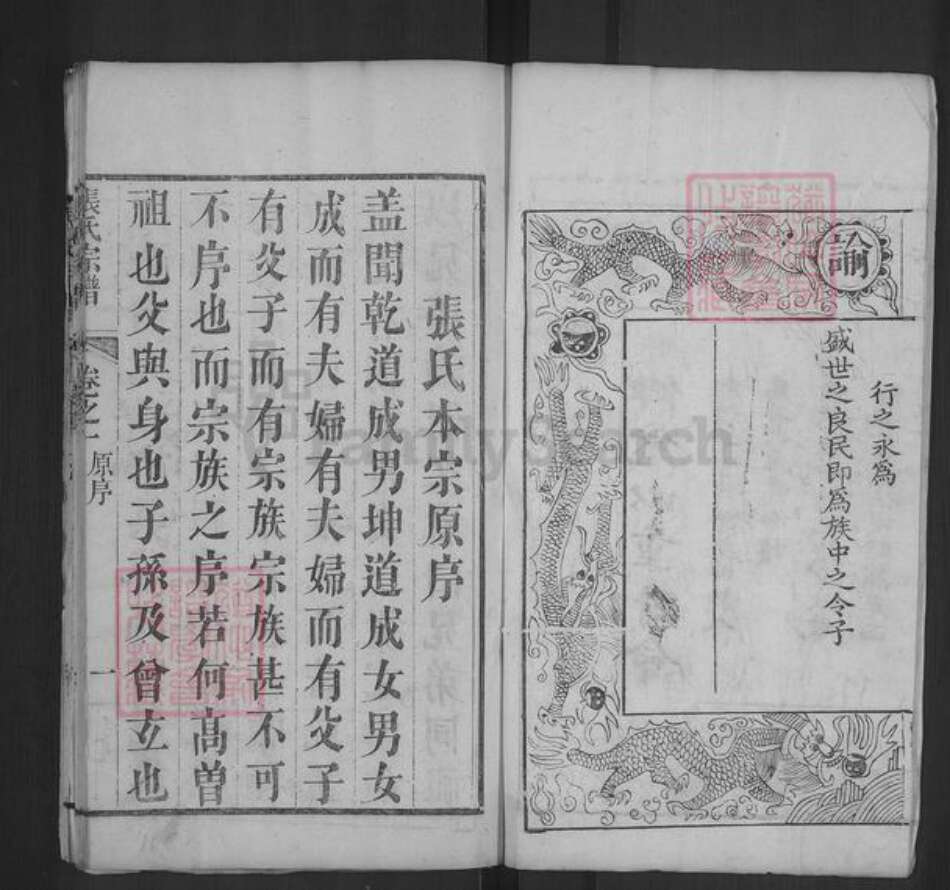 諭
行之永為
盛世之良民即為族中之令子
張氏本宗原序
盖聞乾道成男坤道成女男女
成而有夫婦有夫婦而有父子
有父子而有宗族宗族甚不可
不序也而宗族之序若何高曾
祖也父與身也子孫及曾玄也
張氏宗譜
卷之一
原序
一
FamilySearch